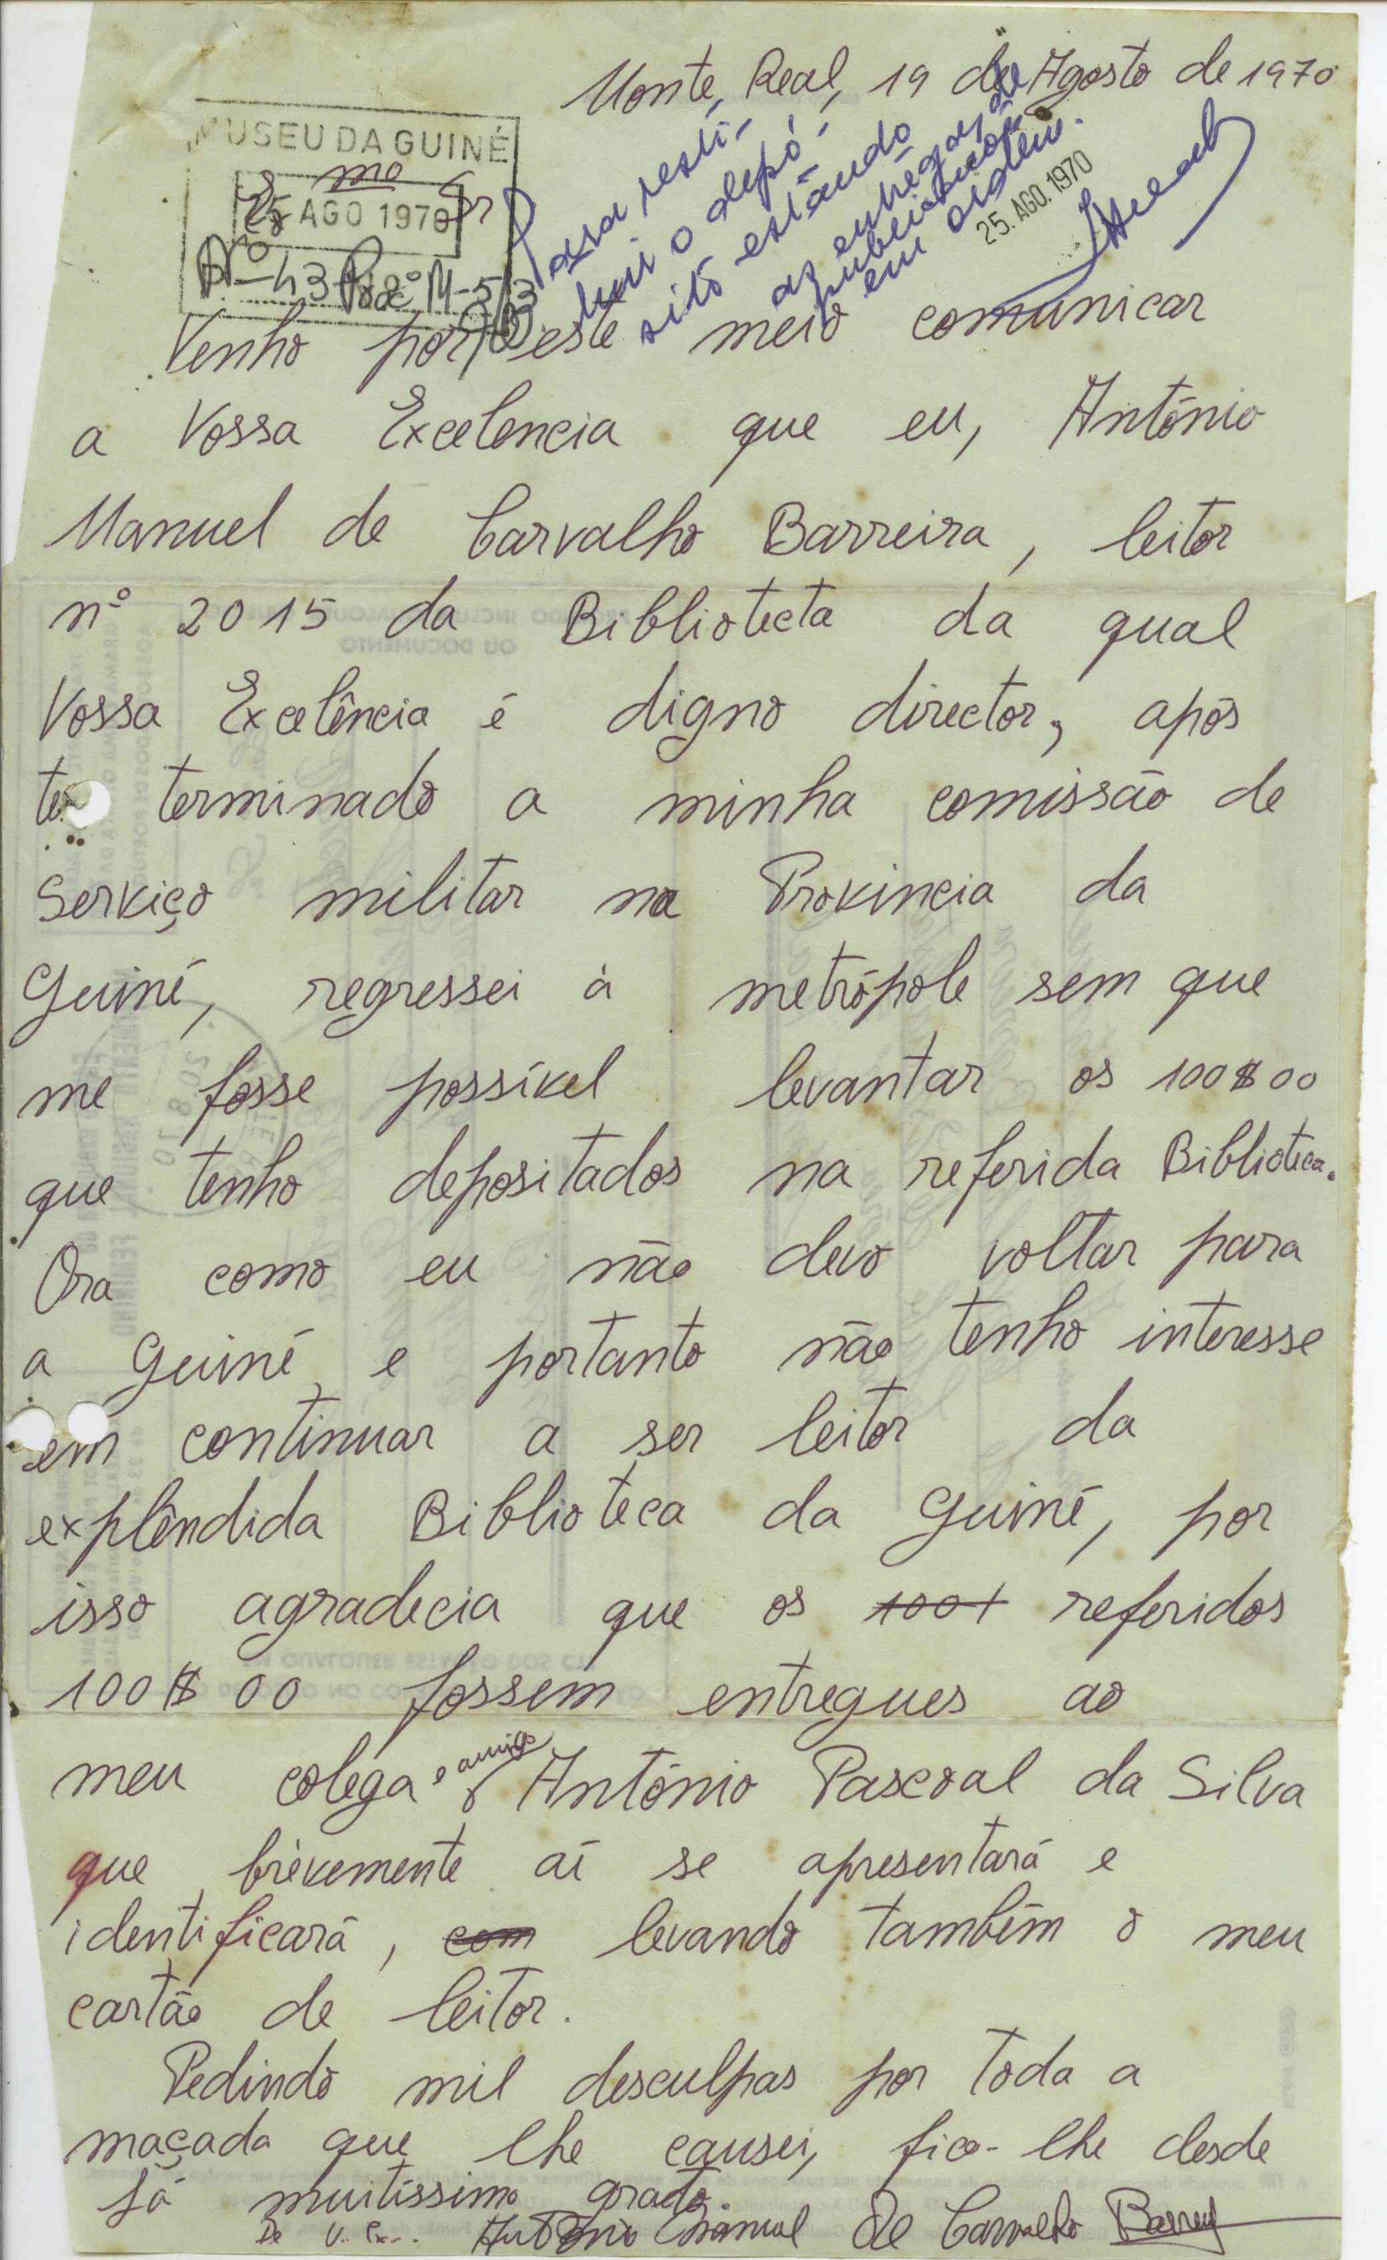 Monte Real, 19 de Agosto de 1970
MUSEU DA GUINÉ
Exmo Sr
25 AGO 1970
Nº 43 Procº M-5/3
Para resti-
tuir o depó-
sito estando
as entregas de
publicações
em ordem.
25. AGO. 1970
Venho por este meio comunicar
a Vossa Excelencia que eu, António
Manuel de Carvalho Barreira, leitor
nº 2015 da Bibliotecta da qual
Vossa Excelência é digno director, após
ter terminado a minha comissão de
Serviço militar na Provincia da
Guiné, regressei à metrópole sem que
me fosse possível levantar os 100$00
que tenho depositados na referida Biblioteca.
Ora como eu não devo voltar para
a Guiné e portanto não tenho interesse
em continuar a ser leitor da
explêndida Biblioteca da Guiné, por
isso agradecia que os 100 referidos
100$00 fossem entregues ao
meu colega e amigo António Pascoal da Silva
que brèvemente aí se apresentará e
identificará, com levando também o meu
cartão de leitor.
Pedindo mil desculpas por toda a
maçada que lhe causei, fico-lhe desde
já muitíssimo grato.
De V. Ex. António Manuel de Carvalho Barreira